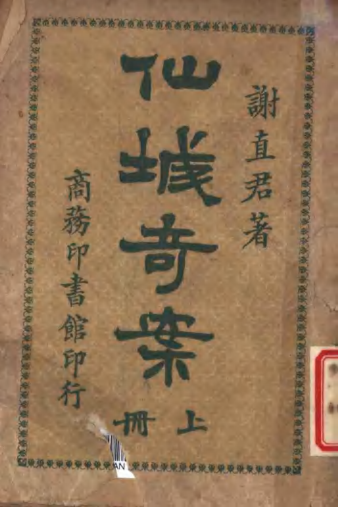 謝直君著
仙城奇案
上冊
商務印書館印行
AN